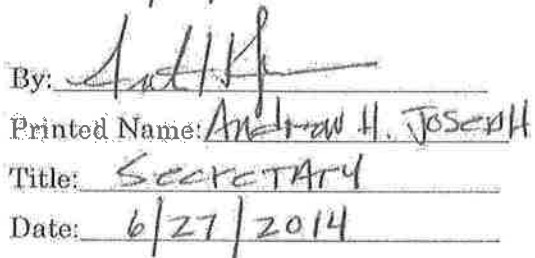 By:
Printed Name: Andrew H. JOSEPH
Title: SecreTAry
Date: 6/27/2014